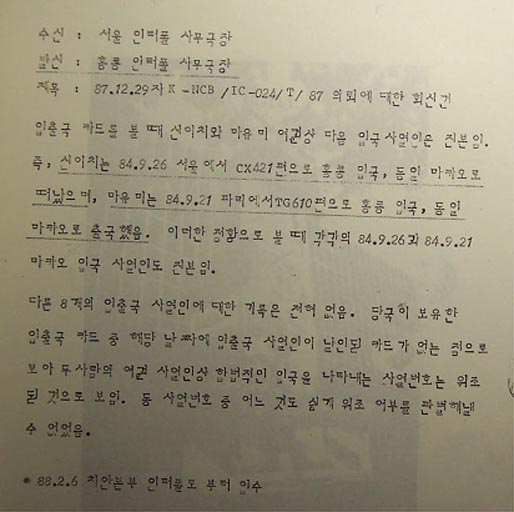 수신 : 서울 인터폴 사무국장
발신 : 홍콩 인터폴 사무국장
제목 : 87.12.29자 K-NCB/IC-024/T/87 의뢰에 대한 회신건
입출국 카드를 볼 때 신이치와 마유미 여권상 다음 입국 사열인은 진본임.
즉, 신이치는 84.9.26 서울에서 CX421편으로 홍콩 입국, 동일 마카오로
떠났으며, 마유미는 84.9.21 파리에서 TG610편으로 홍콩 입국, 동일
마카오로 출국했음. 이러한 정황으로 볼 때 각각의 84.9.26과 84.9.21
마카오 입국 사열인도 진본임.
다른 8개의 입출국 사열인에 대한 기록은 전혀 없음. 당국이 보유한
입출국 카드 중 해당 날짜에 입출국 사열인이 날인된 카드가 없는 점으로
보아 두사람의 여권 사열인상 합법적인 입국을 나타내는 사열번호는 위조
된 것으로 보임. 동 사열번호 중 어느 것도 쉽게 위조 여부를 판별해낼
수 없었음.
* 88.2.6 치안본부 인터폴로 부터 입수